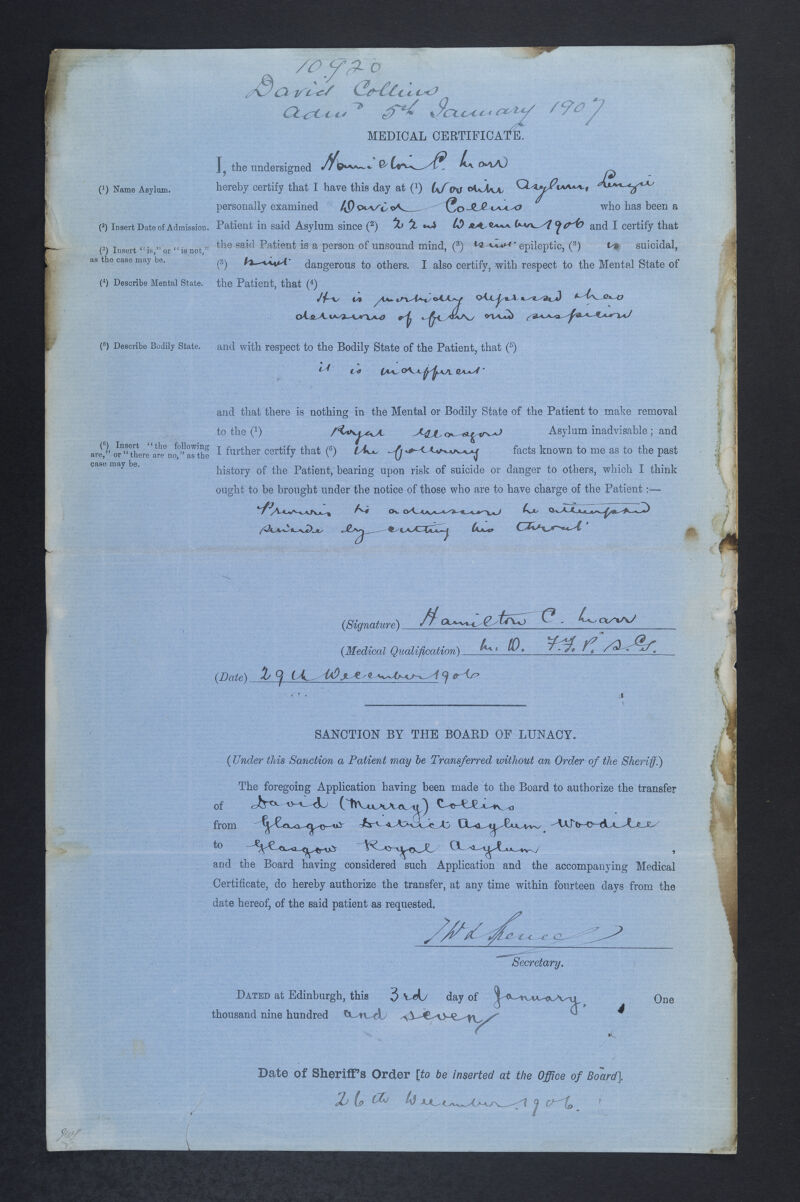 10920
David Collins
Admd 5th January 1907
MEDICAL CERTIFICATE.
I, the undersigned Hamilton C. Marr
(1) Name Asylum. hereby certify that I have this day at (1) Woodilee Asylum, Lenzie
personally examined David Collins who has been a
(2) Insert Date of Admission. Patient in said Asylum since (2) 22nd December 1906 and I certify that
(3) Insert "is," or "is not," as the case may be. the said Patient is a person of unsound mind, (3) is not epileptic, (3) is suicidal,
(3) is not dangerous to others. I also certify, with respect to the Mental State of
(4) Describe Mental State. the Patient, that (4)
He is morbidly depressed & has
delusions of fear and suspicion
(5) Describe Bodily State. and with respect to the Bodily State of the Patient, that (5)
it is indifferent
and that there is nothing in the Mental or Bodily State of the Patient to make removal
to the (1) Royal Glasgow Asylum inadvisable; and
(6) Insert "the following are," or "there are no," as the case may be. I further certify that (6) the following facts known to me as to the past
history of the Patient, bearing upon risk of suicide or danger to others, which I think
ought to be brought under the notice of those who are to have charge of the Patient:—
Previous to admission he attempted
suicide by cutting his throat
(Signature) Hamilton C. Marr
(Medical Qualification) M.D. F.F.P.S.G.
(Date) 29th December 1906
SANCTION BY THE BOARD OF LUNACY.
(Under this Sanction a Patient may be Transferred without an Order of the Sheriff.)
The foregoing Application having been made to the Board to authorize the transfer
of David (Murray) Collins
from Glasgow District Asylum, Woodilee
to Glasgow Royal Asylum,
and the Board having considered such Application and the accompanying Medical
Certificate, do hereby authorize the transfer, at any time within fourteen days from the
date hereof, of the said patient as requested.
TWL Spence
Secretary.
DATED at Edinburgh, this 3rd day of January, One
thousand nine hundred and seven
Date of Sheriff's Order [to be inserted at the Office of Board].
26th December 1906.